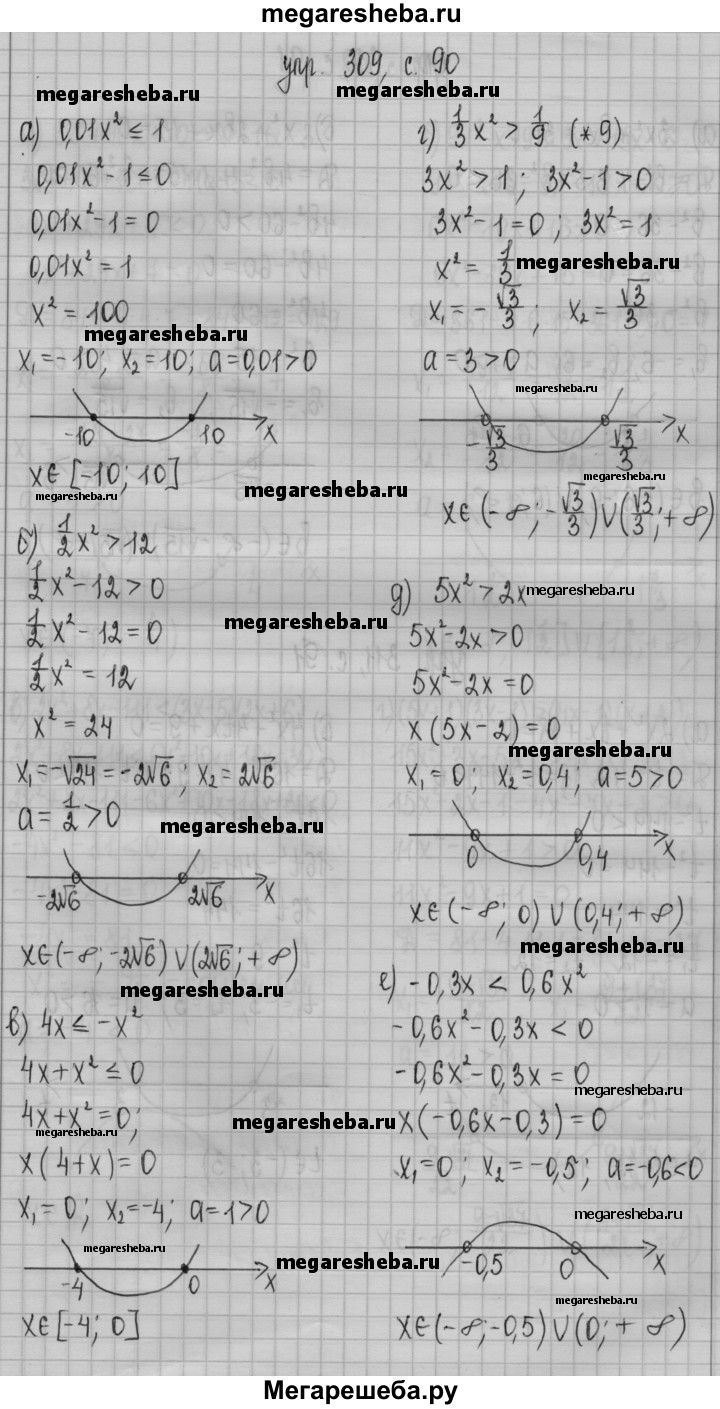 megaresheba.ru
упр. 309, с. 90
megaresheba.ru
megaresheba.ru
а) 0,01x² ≤ 1
0,01x² - 1 ≤ 0
0,01x² - 1 = 0
0,01x² = 1
x² = 100
megaresheba.ru
x₁ = -10; x₂ = 10; a = 0,01 > 0
-10 10 x
x ∈ [-10; 10]
megaresheba.ru
megaresheba.ru
б) 1/2 x² > 12
1/2 x² - 12 > 0
1/2 x² - 12 = 0
megaresheba.ru
1/2 x² = 12
x² = 24
x₁ = -√24 = -2√6; x₂ = 2√6
a = 1/2 > 0
megaresheba.ru
-2√6 2√6 x
x ∈ (-∞; -2√6) ∪ (2√6; +∞)
megaresheba.ru
в) 4x ≤ -x²
4x + x² ≤ 0
4x + x² = 0;
megaresheba.ru
megaresheba.ru
x(4 + x) = 0
x₁ = 0; x₂ = -4; a = 1 > 0
megaresheba.ru
megaresheba.ru
-4 0 x
x ∈ [-4; 0]
г) 1/3 x² > 1/9 (* 9)
3x² > 1; 3x² - 1 > 0
3x² - 1 = 0; 3x² = 1
x² = 1/3
megaresheba.ru
x₁ = -√3/3; x₂ = √3/3
a = 3 > 0
megaresheba.ru
-√3/3 √3/3 x
megaresheba.ru
x ∈ (-∞; -√3/3) ∪ (√3/3; +∞)
д) 5x² > 2x
megaresheba.ru
5x² - 2x > 0
5x² - 2x = 0
x(5x - 2) = 0
megaresheba.ru
x₁ = 0; x₂ = 0,4; a = 5 > 0
0 0,4 x
x ∈ (-∞; 0) ∪ (0,4; +∞)
megaresheba.ru
е) -0,3x < 0,6x²
-0,6x² - 0,3x < 0
-0,6x² - 0,3x = 0
megaresheba.ru
x(-0,6x - 0,3) = 0
x₁ = 0; x₂ = -0,5; a = -0,6 < 0
megaresheba.ru
-0,5 0 x
megaresheba.ru
x ∈ (-∞; -0,5) ∪ (0; +∞)
Мегарешеба.ру